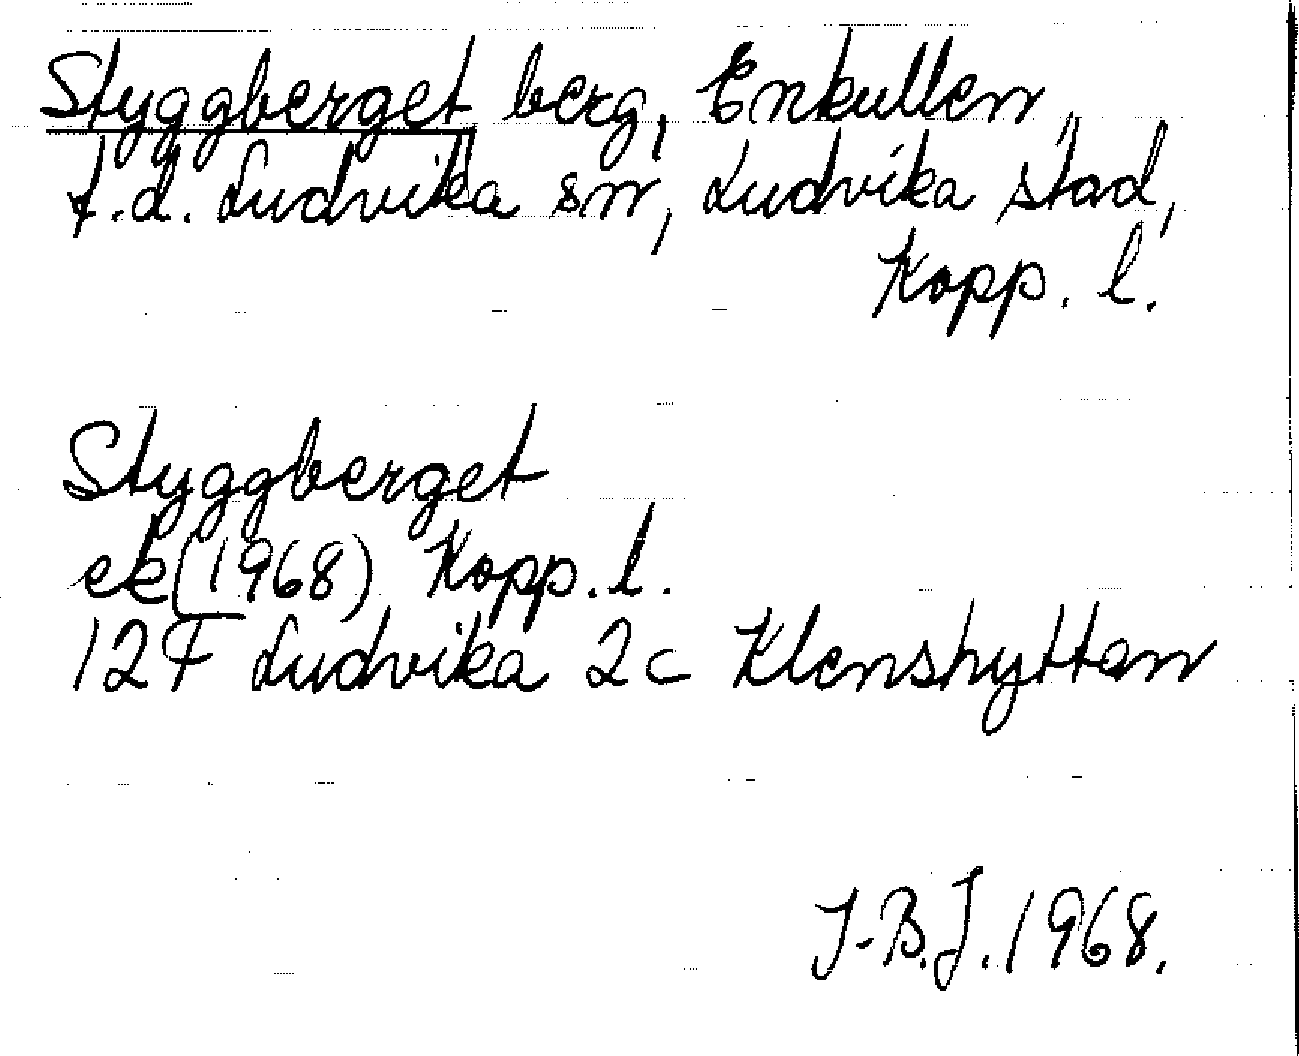 Styggberget berg, Enkullen,
f.d. Ludvika sn, Ludvika stad,
Kopp. l.
Styggberget
ek (1968) Kopp. l.
12F Ludvika 2c Klenshyttan
I-B.J. 1968.